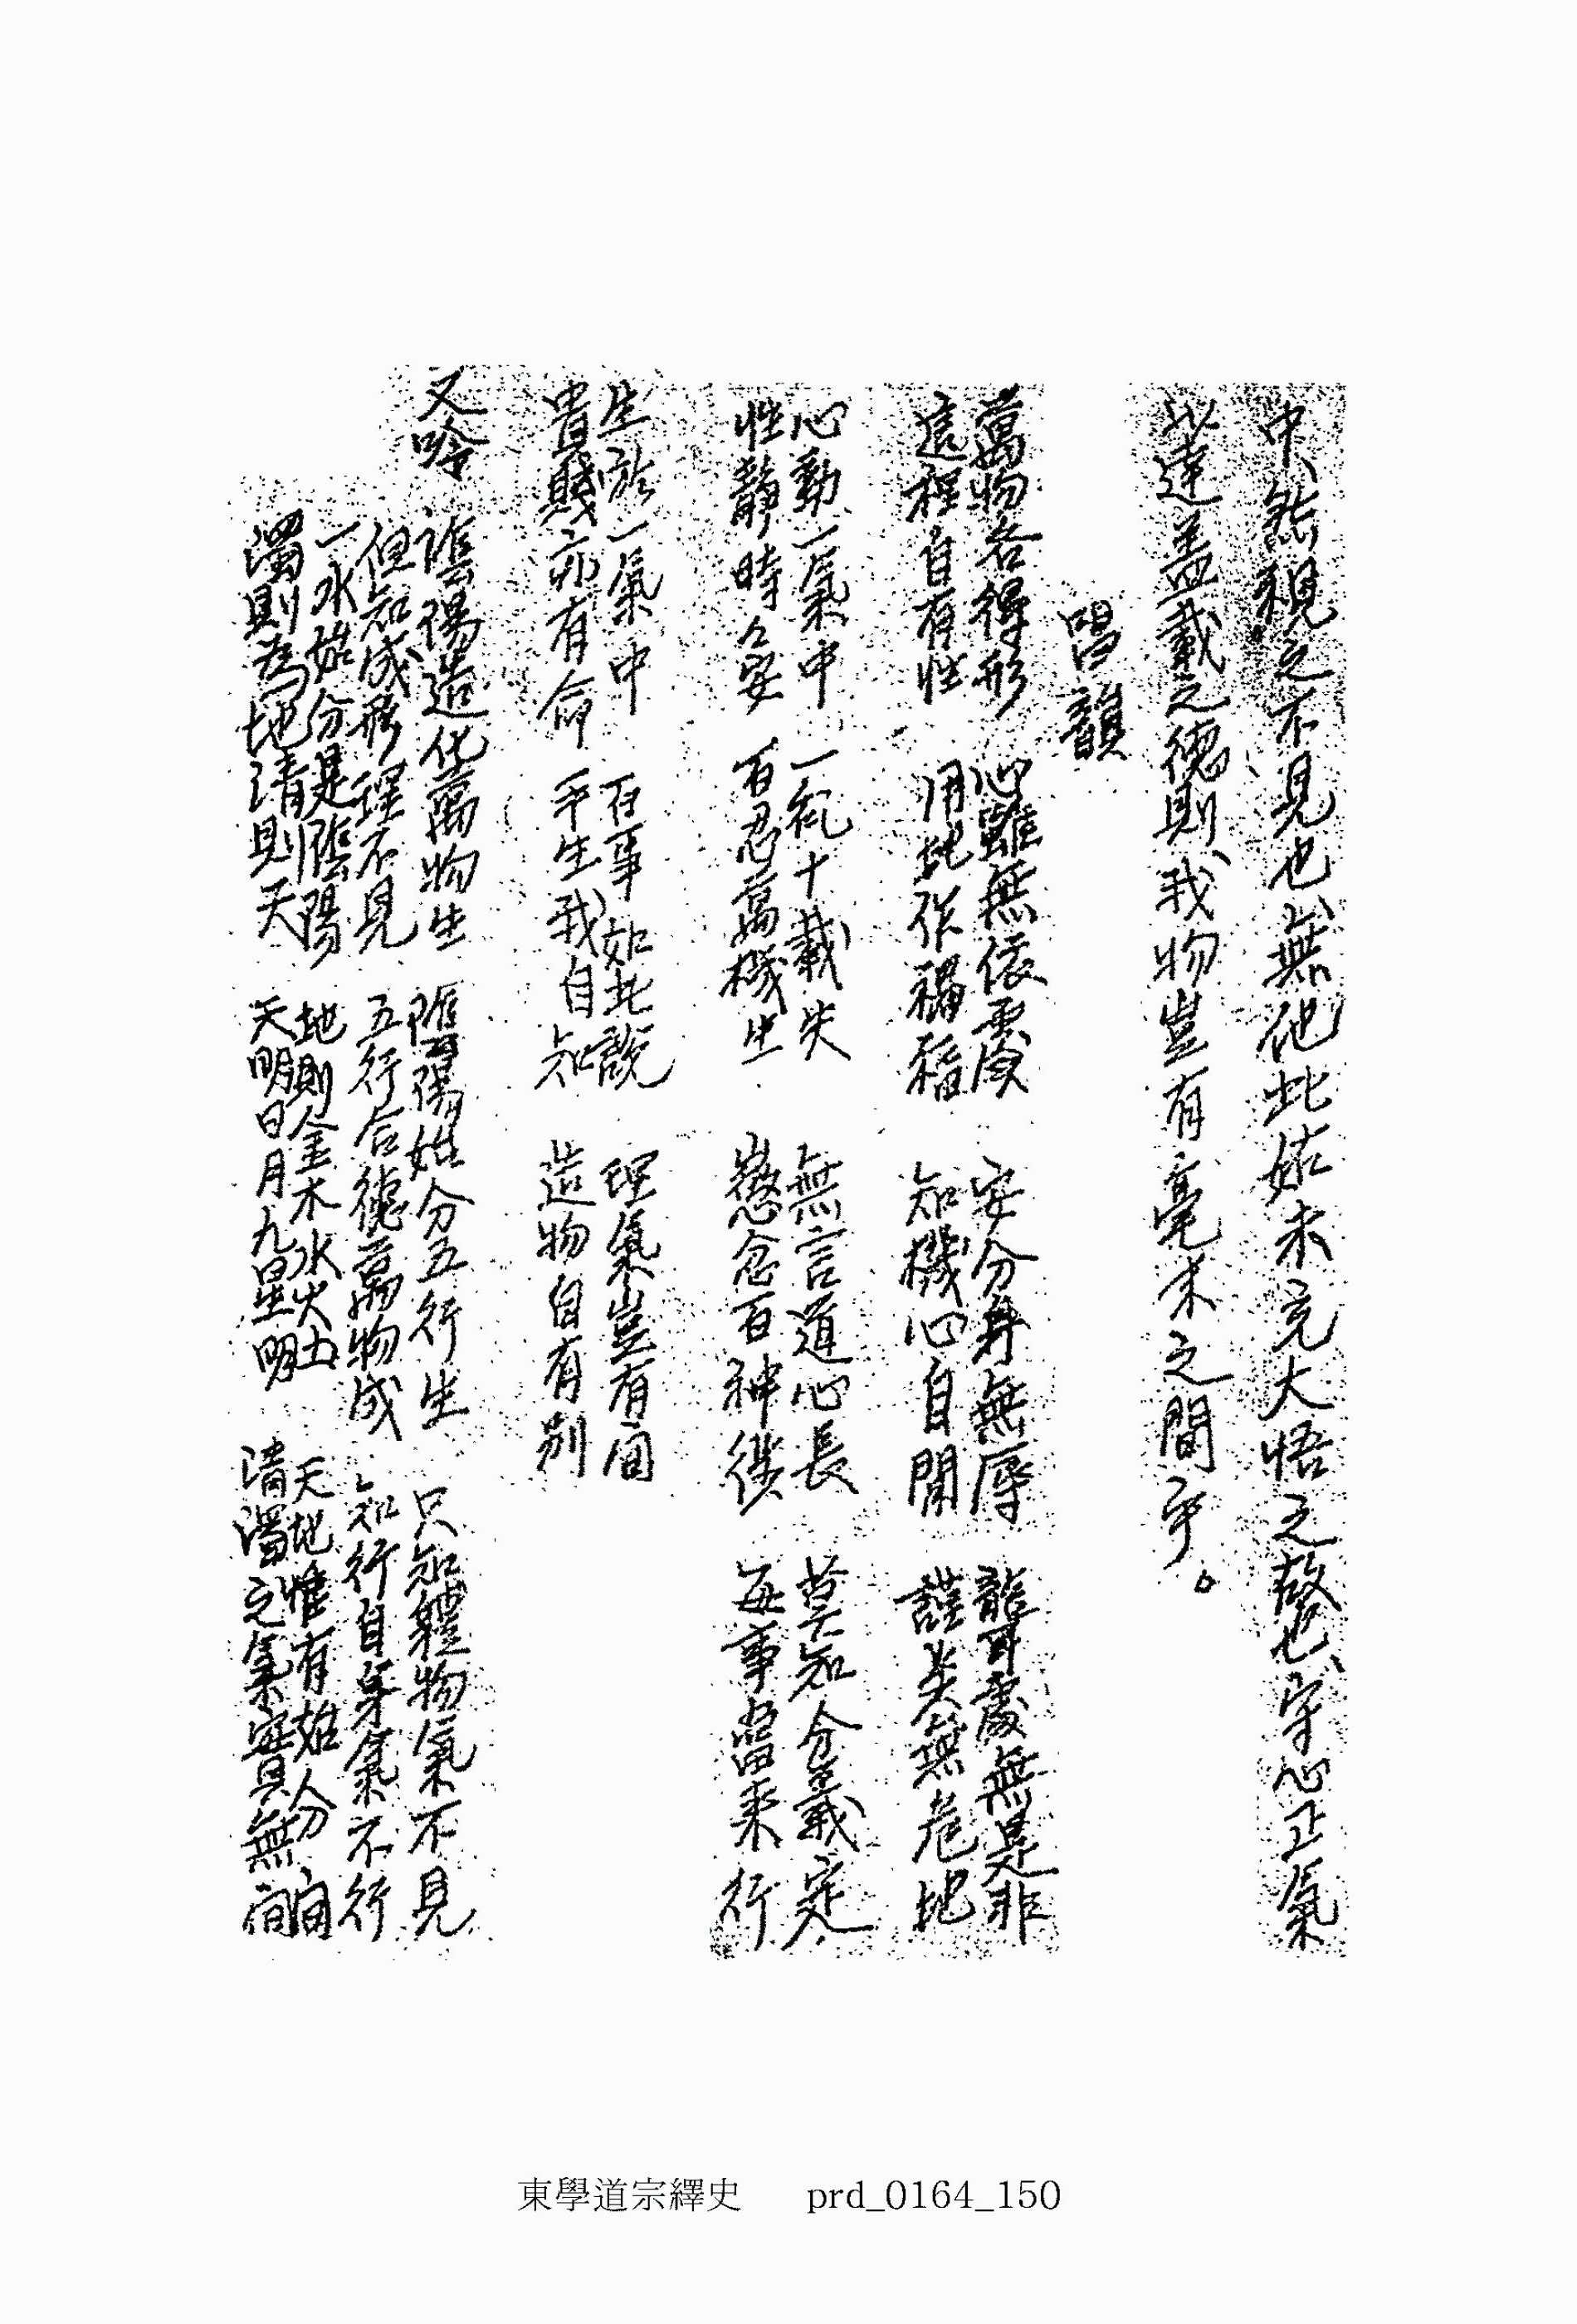 中、然視之不見也、無他此姑未充大悟之發也、守心正氣
以達盖載之德則、我物豈有毫末之間乎。
唱韻
萬物各得形 心雖無依處 安分身無辱 聾耳處無是非
這裡自有性 用此作福稻 知機心自閒 謹美無危地
心動一氣中 一乱十載失 無言道心長 莫知分義定
性靜時久安 百忍萬機生 懲忿百神從 每事當來行
生於一氣中 百事如此說 理氣豈有间
貴賤亦有命 平生我自知 造物自有別
又吟
誰陽造化萬物生 陰陽始分五行生 只知軆物氣不見
但知成形理不見 五行合德萬物成 知行自身氣不行
一水始分是陰陽 地則金木水火土 天地惟有始分间
濁則為地清則天 天明日月九星明 清濁之氣實無间
東學道宗繹史 prd_0164_150